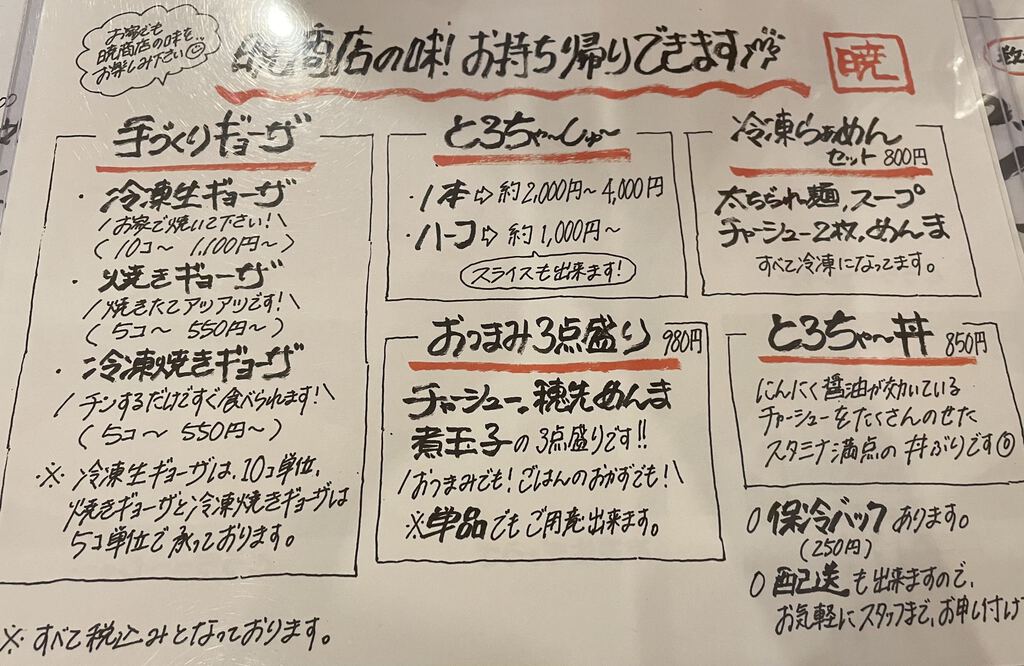 お家でも
暁商店の味を
お楽しみ下さい
暁商店の味!お持ち帰りできます
暁
手づくりギョーザ
・冷凍生ギョーザ
/お家で焼いて下さい!\
(10コ〜 1,100円〜)
・焼きギョーザ
/焼きたてアツアツです!\
(5コ〜 550円〜)
・冷凍焼きギョーザ
/チンするだけですぐ食べられます!\
(5コ〜 550円〜)
※冷凍生ギョーザは、10コ単位、
焼きギョーザと冷凍焼きギョーザは
5コ単位で承っております。
※すべて税込みとなっております。
とろちゃ〜しゅ〜
・1本⇨約2,000円〜4,000円
・ハーフ⇨約1,000円〜
スライスも出来ます!
おつまみ3点盛り 980円
チャーシュー。穂先めんま
煮玉子の3点盛りです!!
/おつまみでも!ごはんのおかずでも!\
※単品でもご用意出来ます。
冷凍らぁめん
セット 800円
太ちぢれ麺、スープ
チャーシュー2枚、めんま
すべて冷凍になってます。
とろちゃ〜丼 850円
にんにく醤油が効いている
チャーシューをたくさんのせた
スタミナ満点の丼ぶりです
○保冷バックあります。
(250円)
○配送も出来ますので、
お気軽にスタッフまで、お申し付け